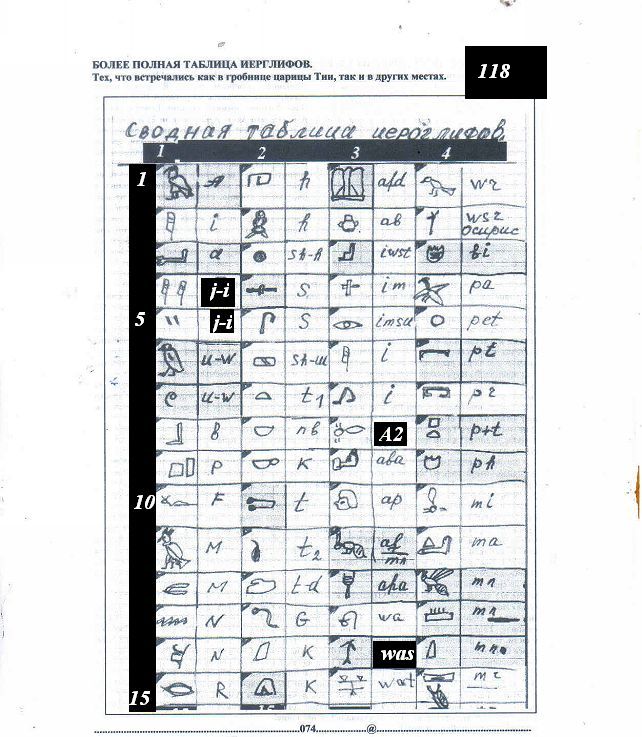 БОЛЕЕ ПОЛНАЯ ТАБЛИЦА ИЕРГЛИФОВ.
118
Тех, что встречались как в гробнице царицы Тии, так и в других местах.
Сводная таблица иероглифов.
1 2 3 4
1 A h afd wr
i h ab wsr осирис
a sh-h iwst fi
j-i S im pa
5 j-i S imsu pet
u-w sh-ш i pt
u-w t1 i pr
B nb A2 p+t
P K aba ph
10 F t ap mi
M t2 af mn ma
M t-d aha mn
N G wa mn
N K was mn
15 R K wat mr
074 @